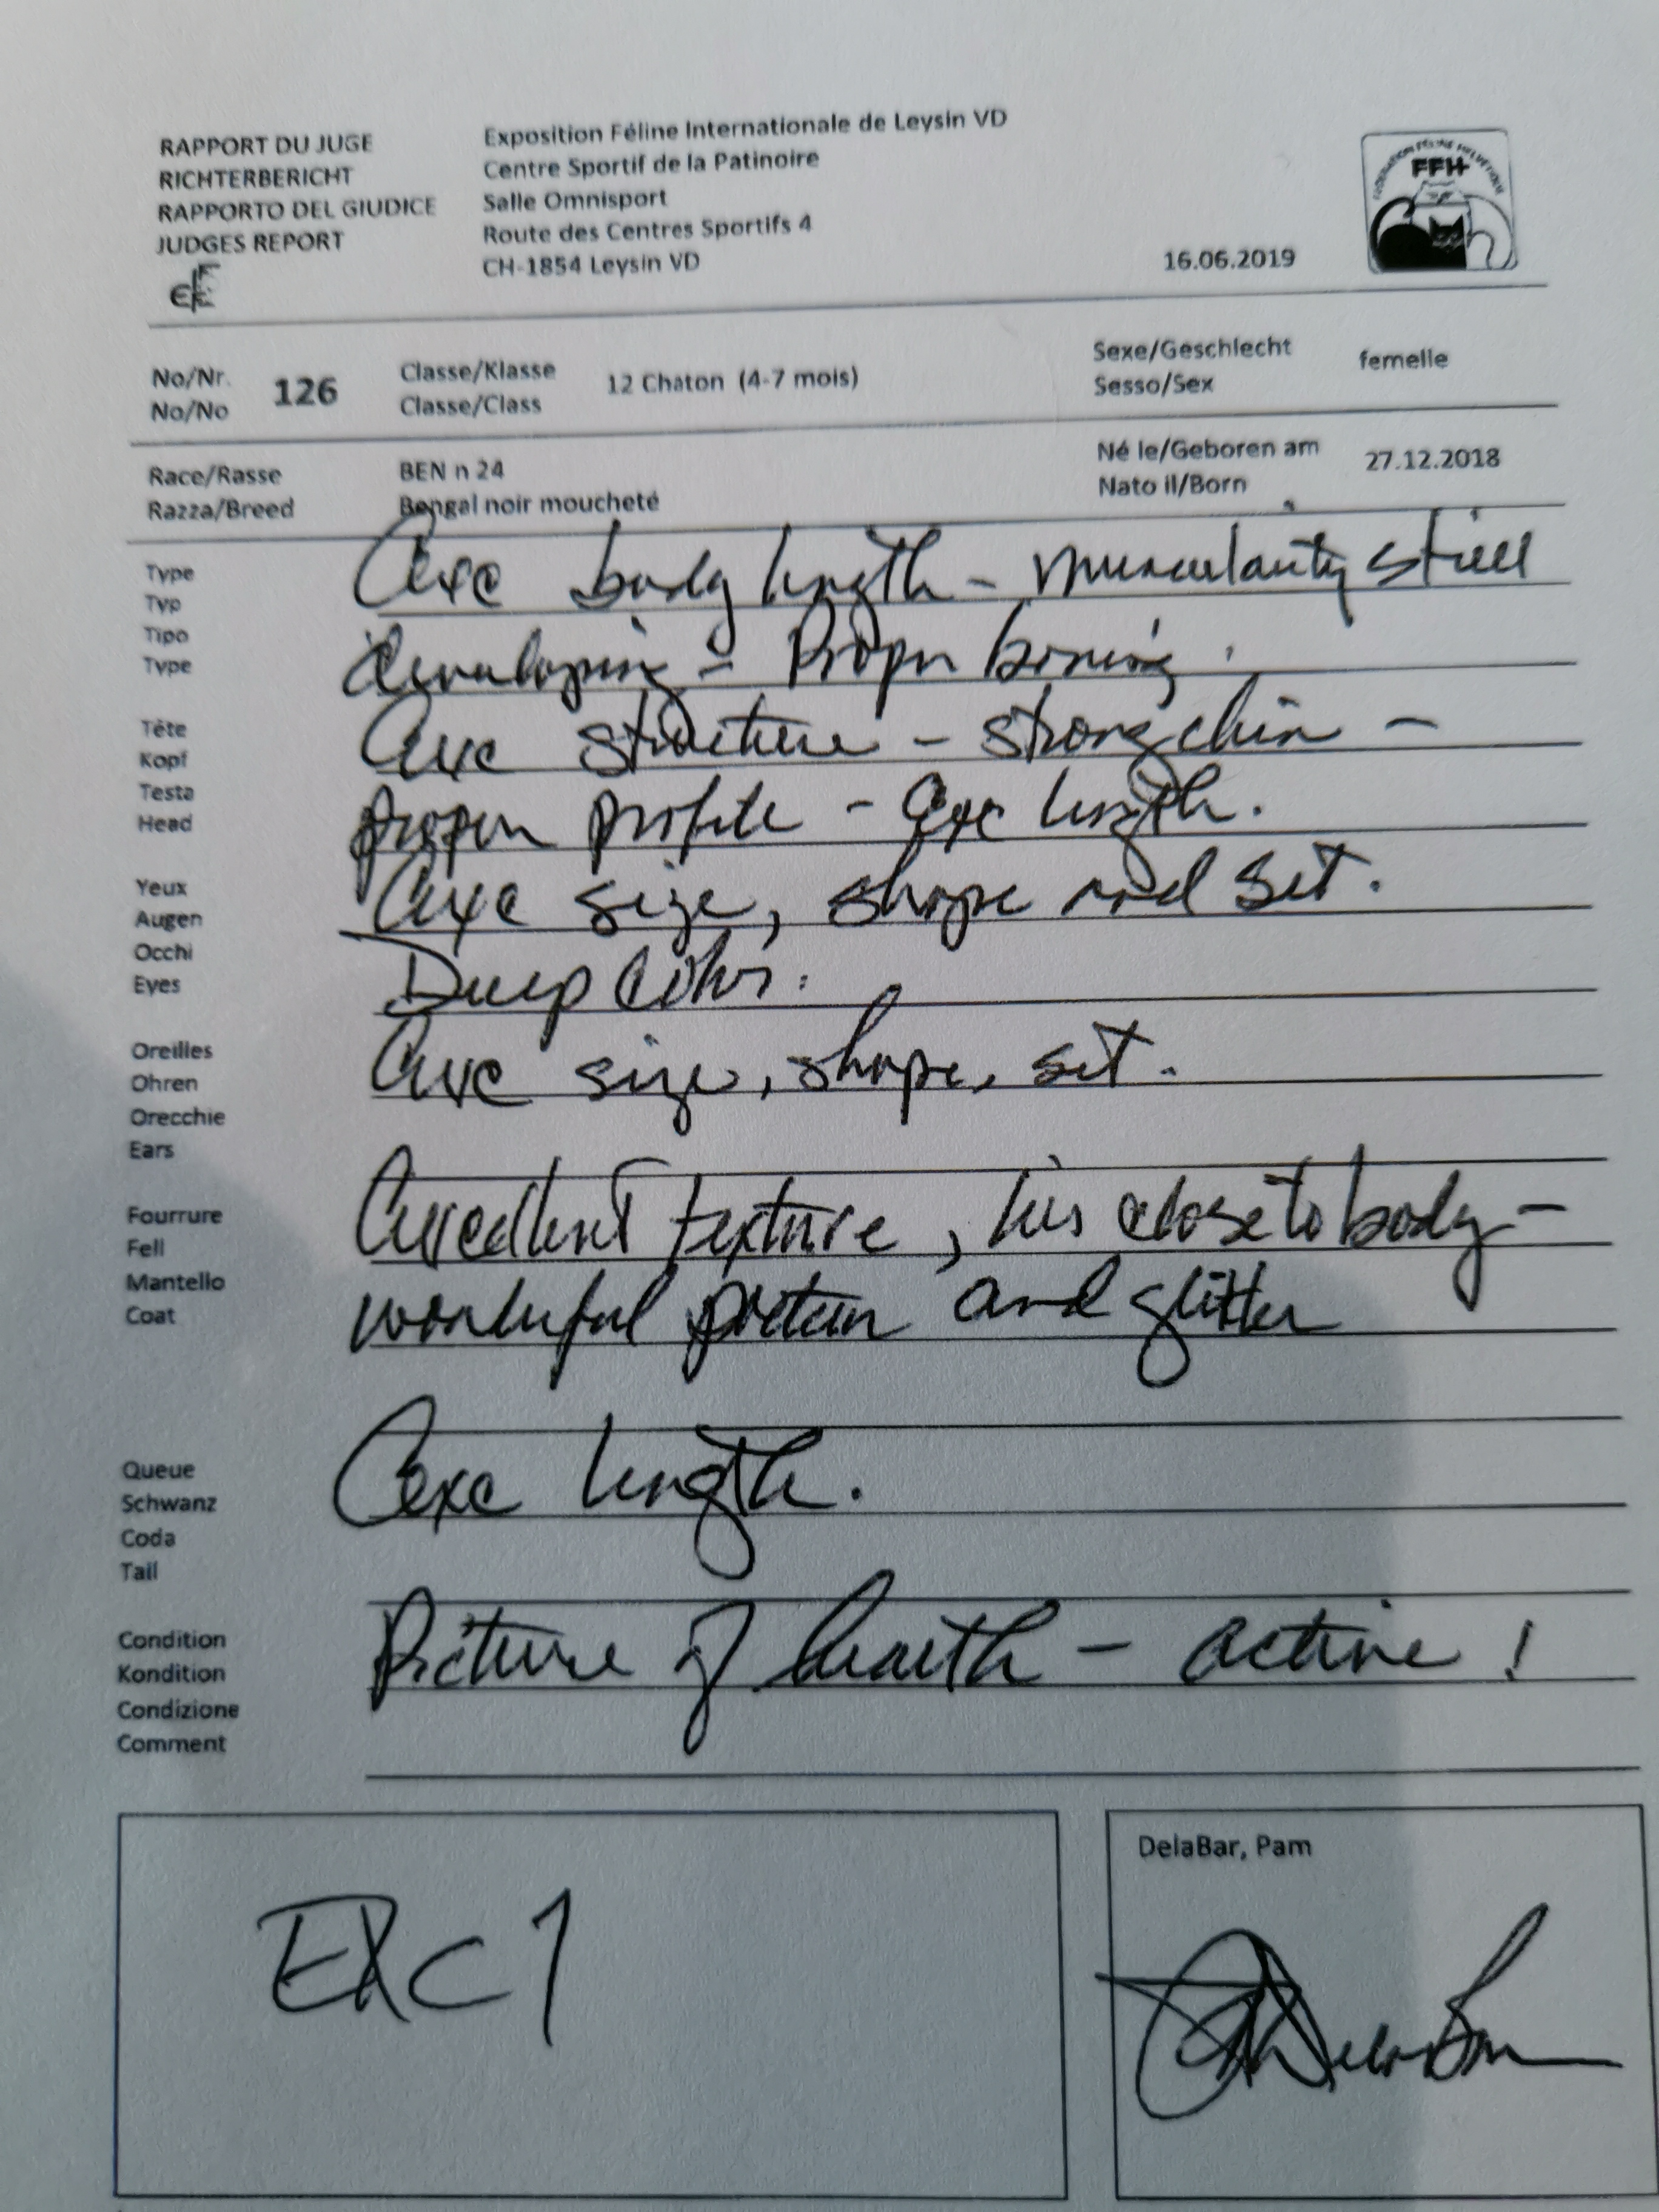 RAPPORT DU JUGE
RICHTERBERICHT
RAPPORTO DEL GIUDICE
JUDGES REPORT
Exposition Féline Internationale de Leysin VD
Centre Sportif de la Patinoire
Salle Omnisport
Route des Centres Sportifs 4
CH-1854 Leysin VD
16.06.2019
FFH
No/Nr.
No/No
126
Classe/Klasse
Classe/Class
12 Chaton (4-7 mois)
Sexe/Geschlecht
Sesso/Sex
femelle
Race/Rasse
Razza/Breed
BEN n 24
Bengal noir moucheté
Né le/Geboren am
Nato il/Born
27.12.2018
Type
Typ
Tipo
Type
exc body length - muscularity still
developing - Proper boning.
Tête
Kopf
Testa
Head
exc structure - strong chin -
proper profile - exc length.
Yeux
Augen
Occhi
Eyes
exc size, shape and set.
Deep color.
Oreilles
Ohren
Orecchie
Ears
exc size, shape, set.
Fourrure
Fell
Mantello
Coat
Excellent texture, lies close to body -
wonderful pattern and glitter
Queue
Schwanz
Coda
Tail
exc length.
Condition
Kondition
Condizione
Comment
Picture of health - active!
EXC 1
DelaBar, Pam